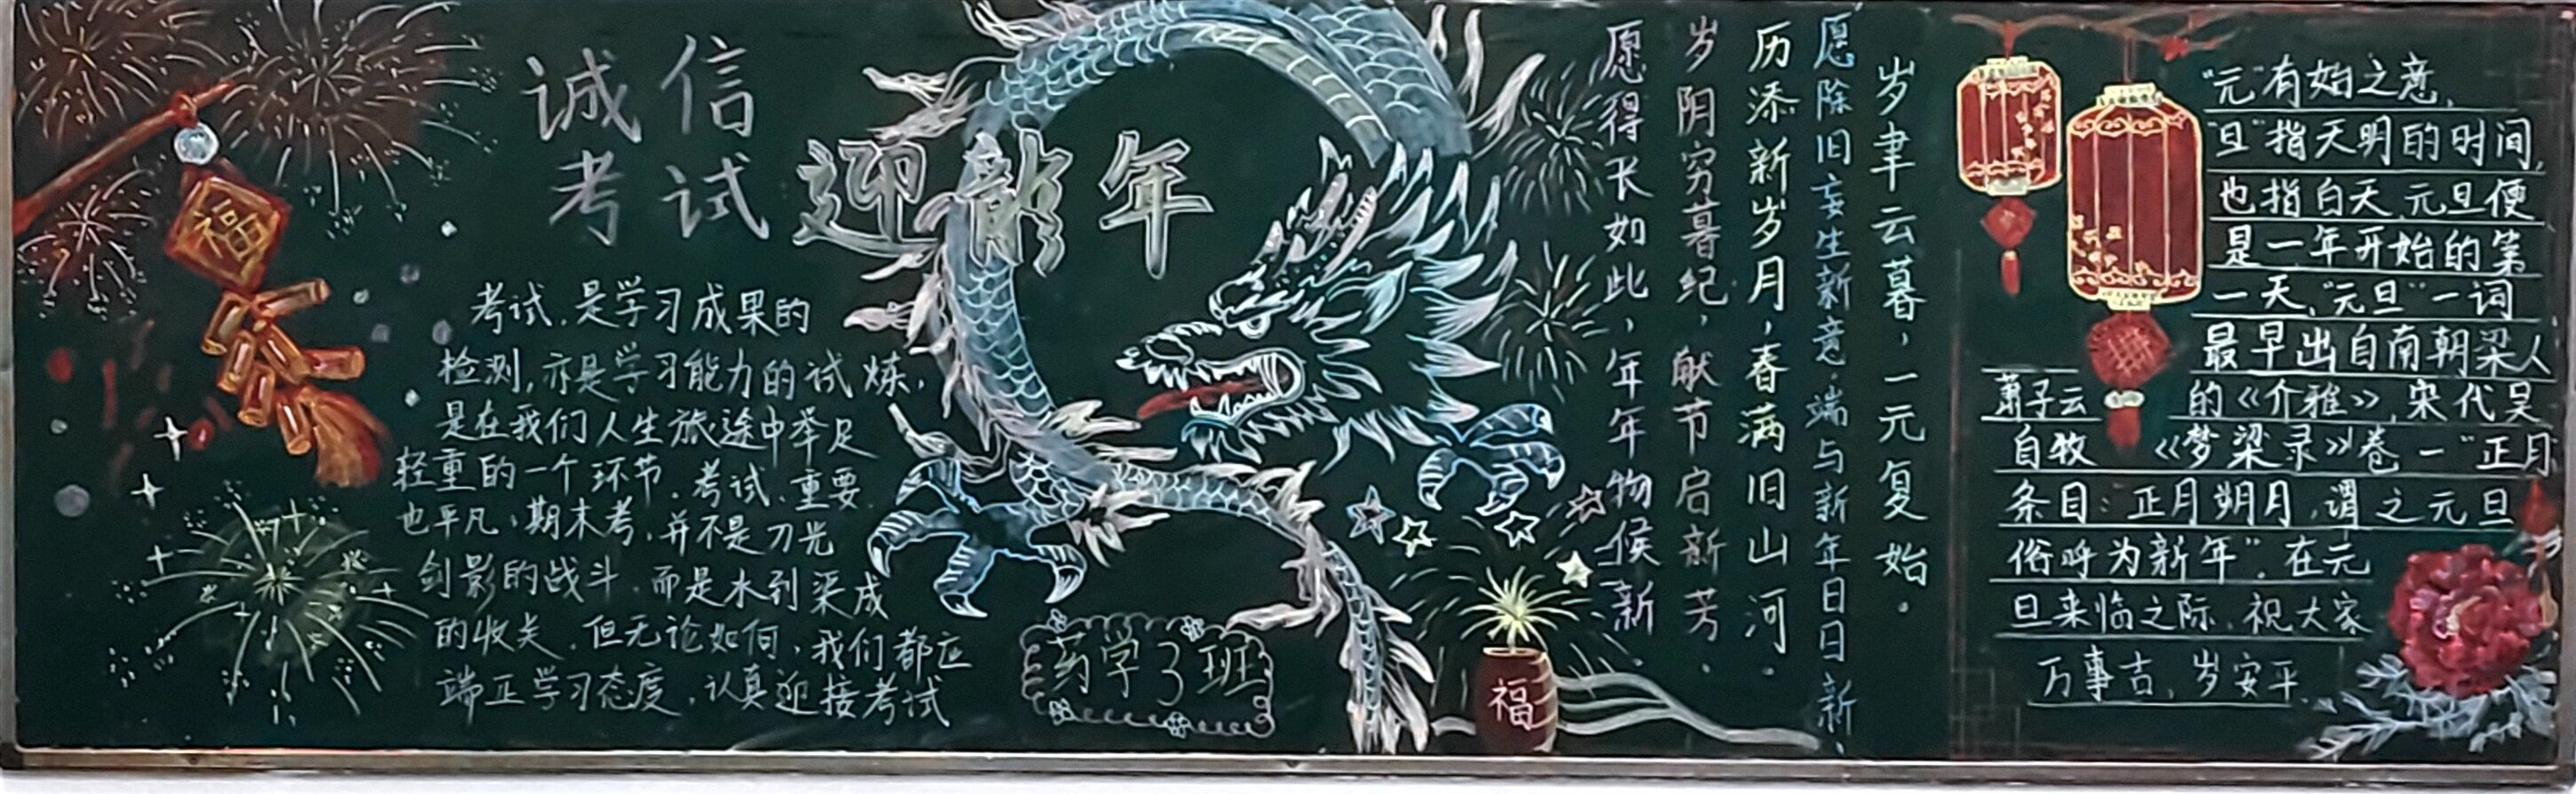 诚信
考试
迎龍年
福
考试,是学习成果的
检测,亦是学习能力的试炼,
是在我们人生旅途中举足
轻重的一个环节。考试、重要
也平凡,期末考,并不是刀光
剑影的战斗,而是水到渠成
的收关,但无论如何,我们都应
端正学习态度,认真迎接考试
药学3班
福
岁聿云暮,一元复始。
愿除旧妄生新意,端与新年日日新,
历添新岁月,春满旧山河.
岁阴穷暮纪,献节启新芳.
愿得长如此,年年物候新.
"元"有始之意,
"旦"指天明的时间,
也指白天,元旦便
是一年开始的第
一天,"元旦"一词
最早出自南朝梁人
萧子云 的《介雅》,宋代吴
自牧 《梦梁录》卷一"正月
条目:正月朔月,谓之元旦
俗呼为新年"。在元
旦来临之际,祝大家
万事吉,岁安平